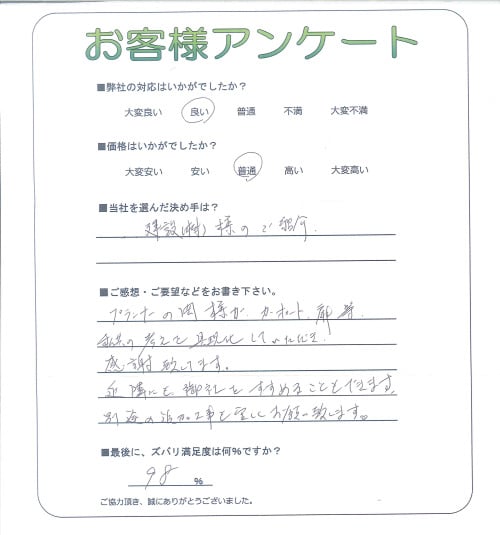 お客様アンケート
■弊社の対応はいかがでしたか?
大変良い 良い 普通 不満 大変不満
■価格はいかがでしたか?
大変安い 安い 普通 高い 大変高い
■当社を選んだ決め手は?
建設(株)様のご紹介.
■ご感想・ご要望などをお書き下さい。
プランナーの関様が、カーポート、扉等、
私共の考えを具現化していただき、
感謝致してます。
近隣にも御社をすすめることもできます。
別途の追加工事も宜しくお願い致します。
■最後に、ズバリ満足度は何%ですか?
98 %
ご協力頂き、誠にありがとうございました。